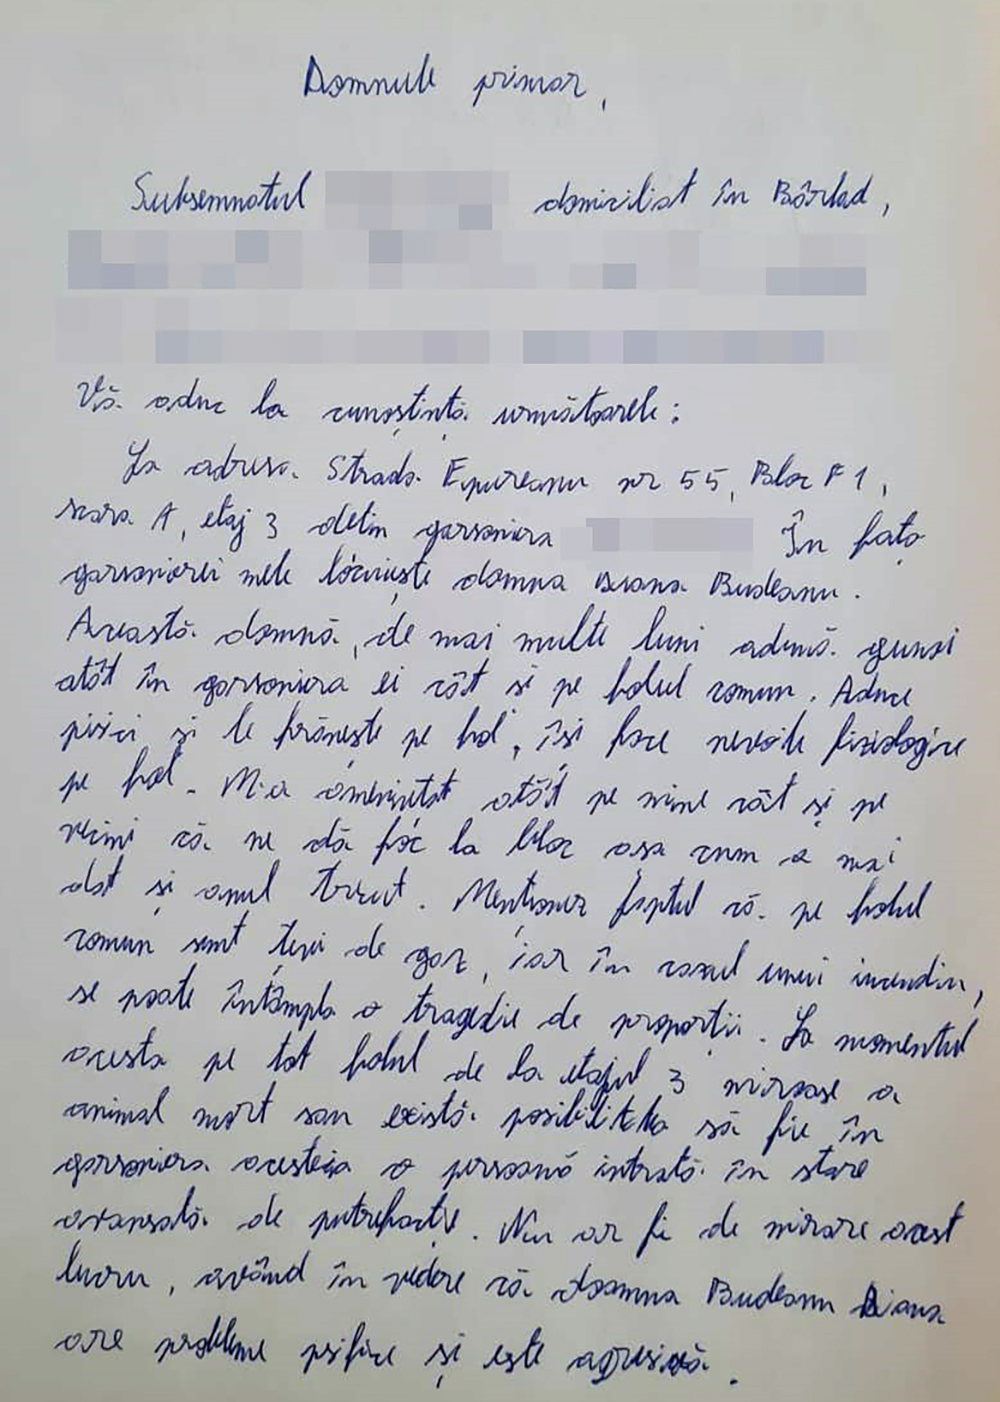 Domnule primar,
Subsemnatul domiciliat în Bârlad,
Vă aduc la cunoștință următoarele:
La adresa Strada Epureanu nr 55, Bloc F1,
scara A, etaj 3 dețin garsoniera În fața
garsonierei mele locuiește doamna Diana Budeanu.
Această damnă, de mai multe luni adună gunoi
atât în garsoniera ei cât și pe holul comun. Aduce
pisici și le hrănește pe hol, își face nevoile fiziologice
pe hol. M-a amenințat atât pe mine cât și pe
vecini că ne dă foc la bloc așa cum a mai
dat și anul trecut. Menționez faptul că pe holul
comun sunt țevi de gaz, iar în cazul unui incendiu,
se poate întâmpla o tragedie de proporții. La momentul
acesta pe tot holul de la etajul 3 miroase a
animal mort sau există posibilitatea să fie în
garsoniera acesteia o persoană intrată în stare
avansată de putrefacție. Nu ar fi de mirare acest
lucru, având în vedere că doamna Budeanu Diana
are probleme psihice și este agresivă.